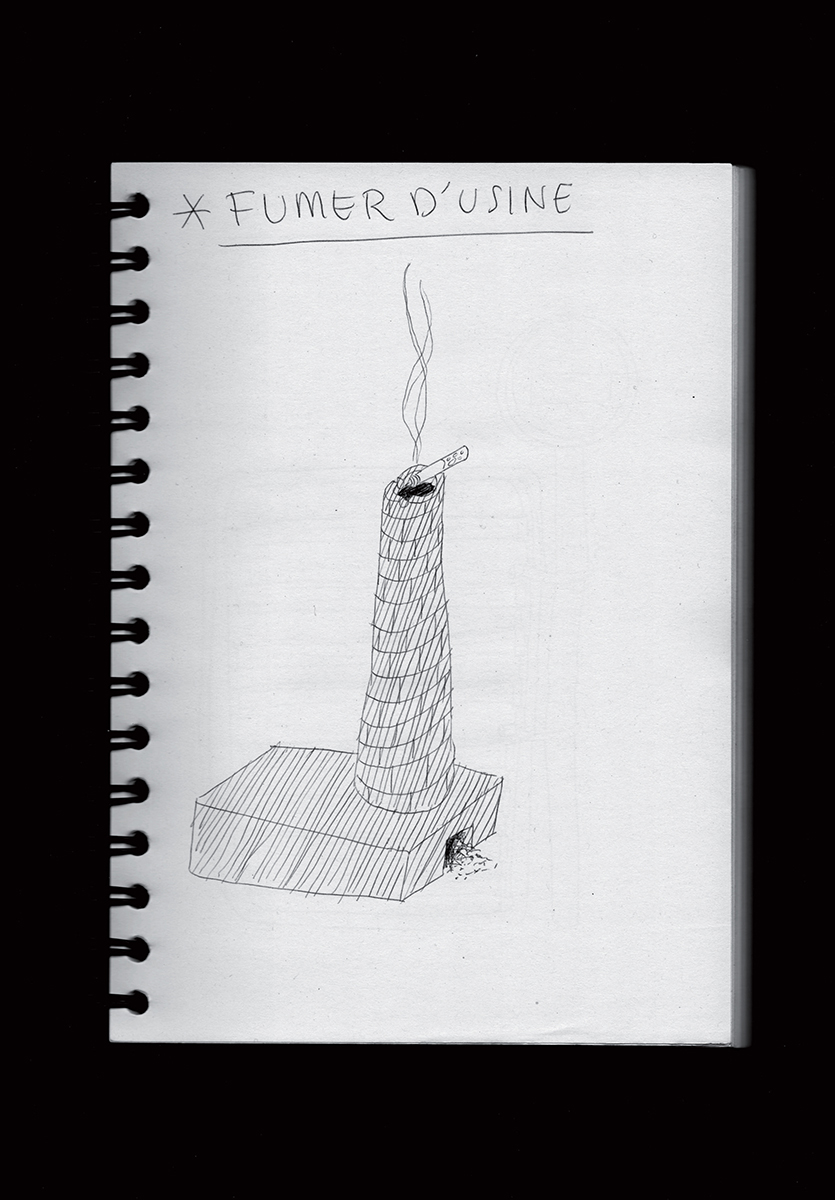 * FUMER D'USINE